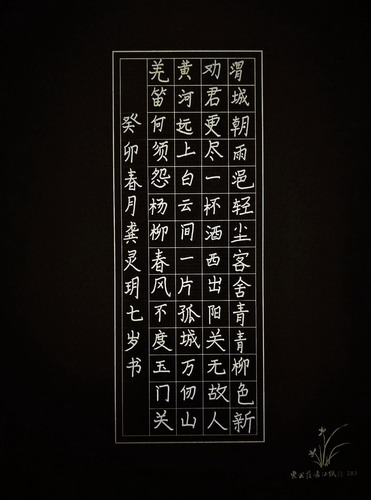 渭城朝雨浥轻尘客舍青青柳色新
劝君更尽一杯酒西出阳关无故人
黄河远上白云间一片孤城万仞山
羌笛何须怨杨柳春风不度玉门关
癸卯春月龚灵玥七岁书